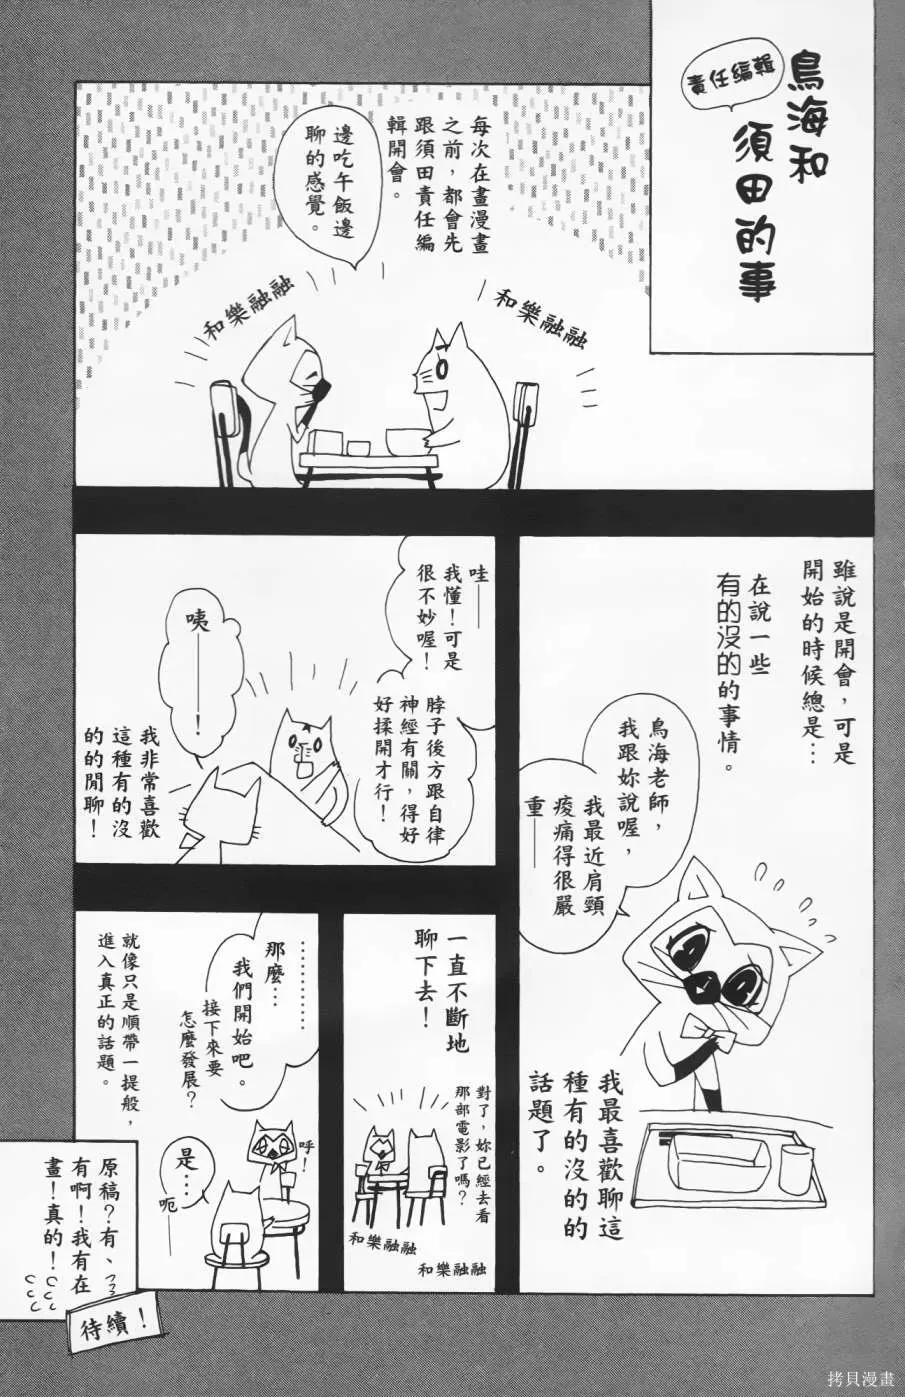 鳥海和
責任編輯
須田的事
每次在畫漫畫
之前，都會先
跟須田責任編
輯開會。
邊吃午飯邊
聊的感覺。
和樂融融
和樂融融
雖說是開會，可是
開始的時候總是…
在說一些
有的沒的的事情。
鳥海老師，
我跟妳說喔，
我最近肩頸
痠痛得很嚴
重——
我最喜歡聊這
種有的沒的的
話題了。
哇——
我懂！可是
很不妙喔！
脖子後方跟自律
神經有關，得好
好揉開才行！
咦——！
我非常喜歡
這種有的沒
的的閒聊！
一直不斷地
聊下去！
對了，妳已經去看
那部電影了嗎？
和樂融融
和樂融融
…………
那麼…
我們開始吧。
接下來要
怎麼發展？
呼！
是…
呃——
就像只是順帶一提般，
進入真正的話題。
原稿？有、
有啊！我有在
畫！真的！
待續！
拷貝漫畫